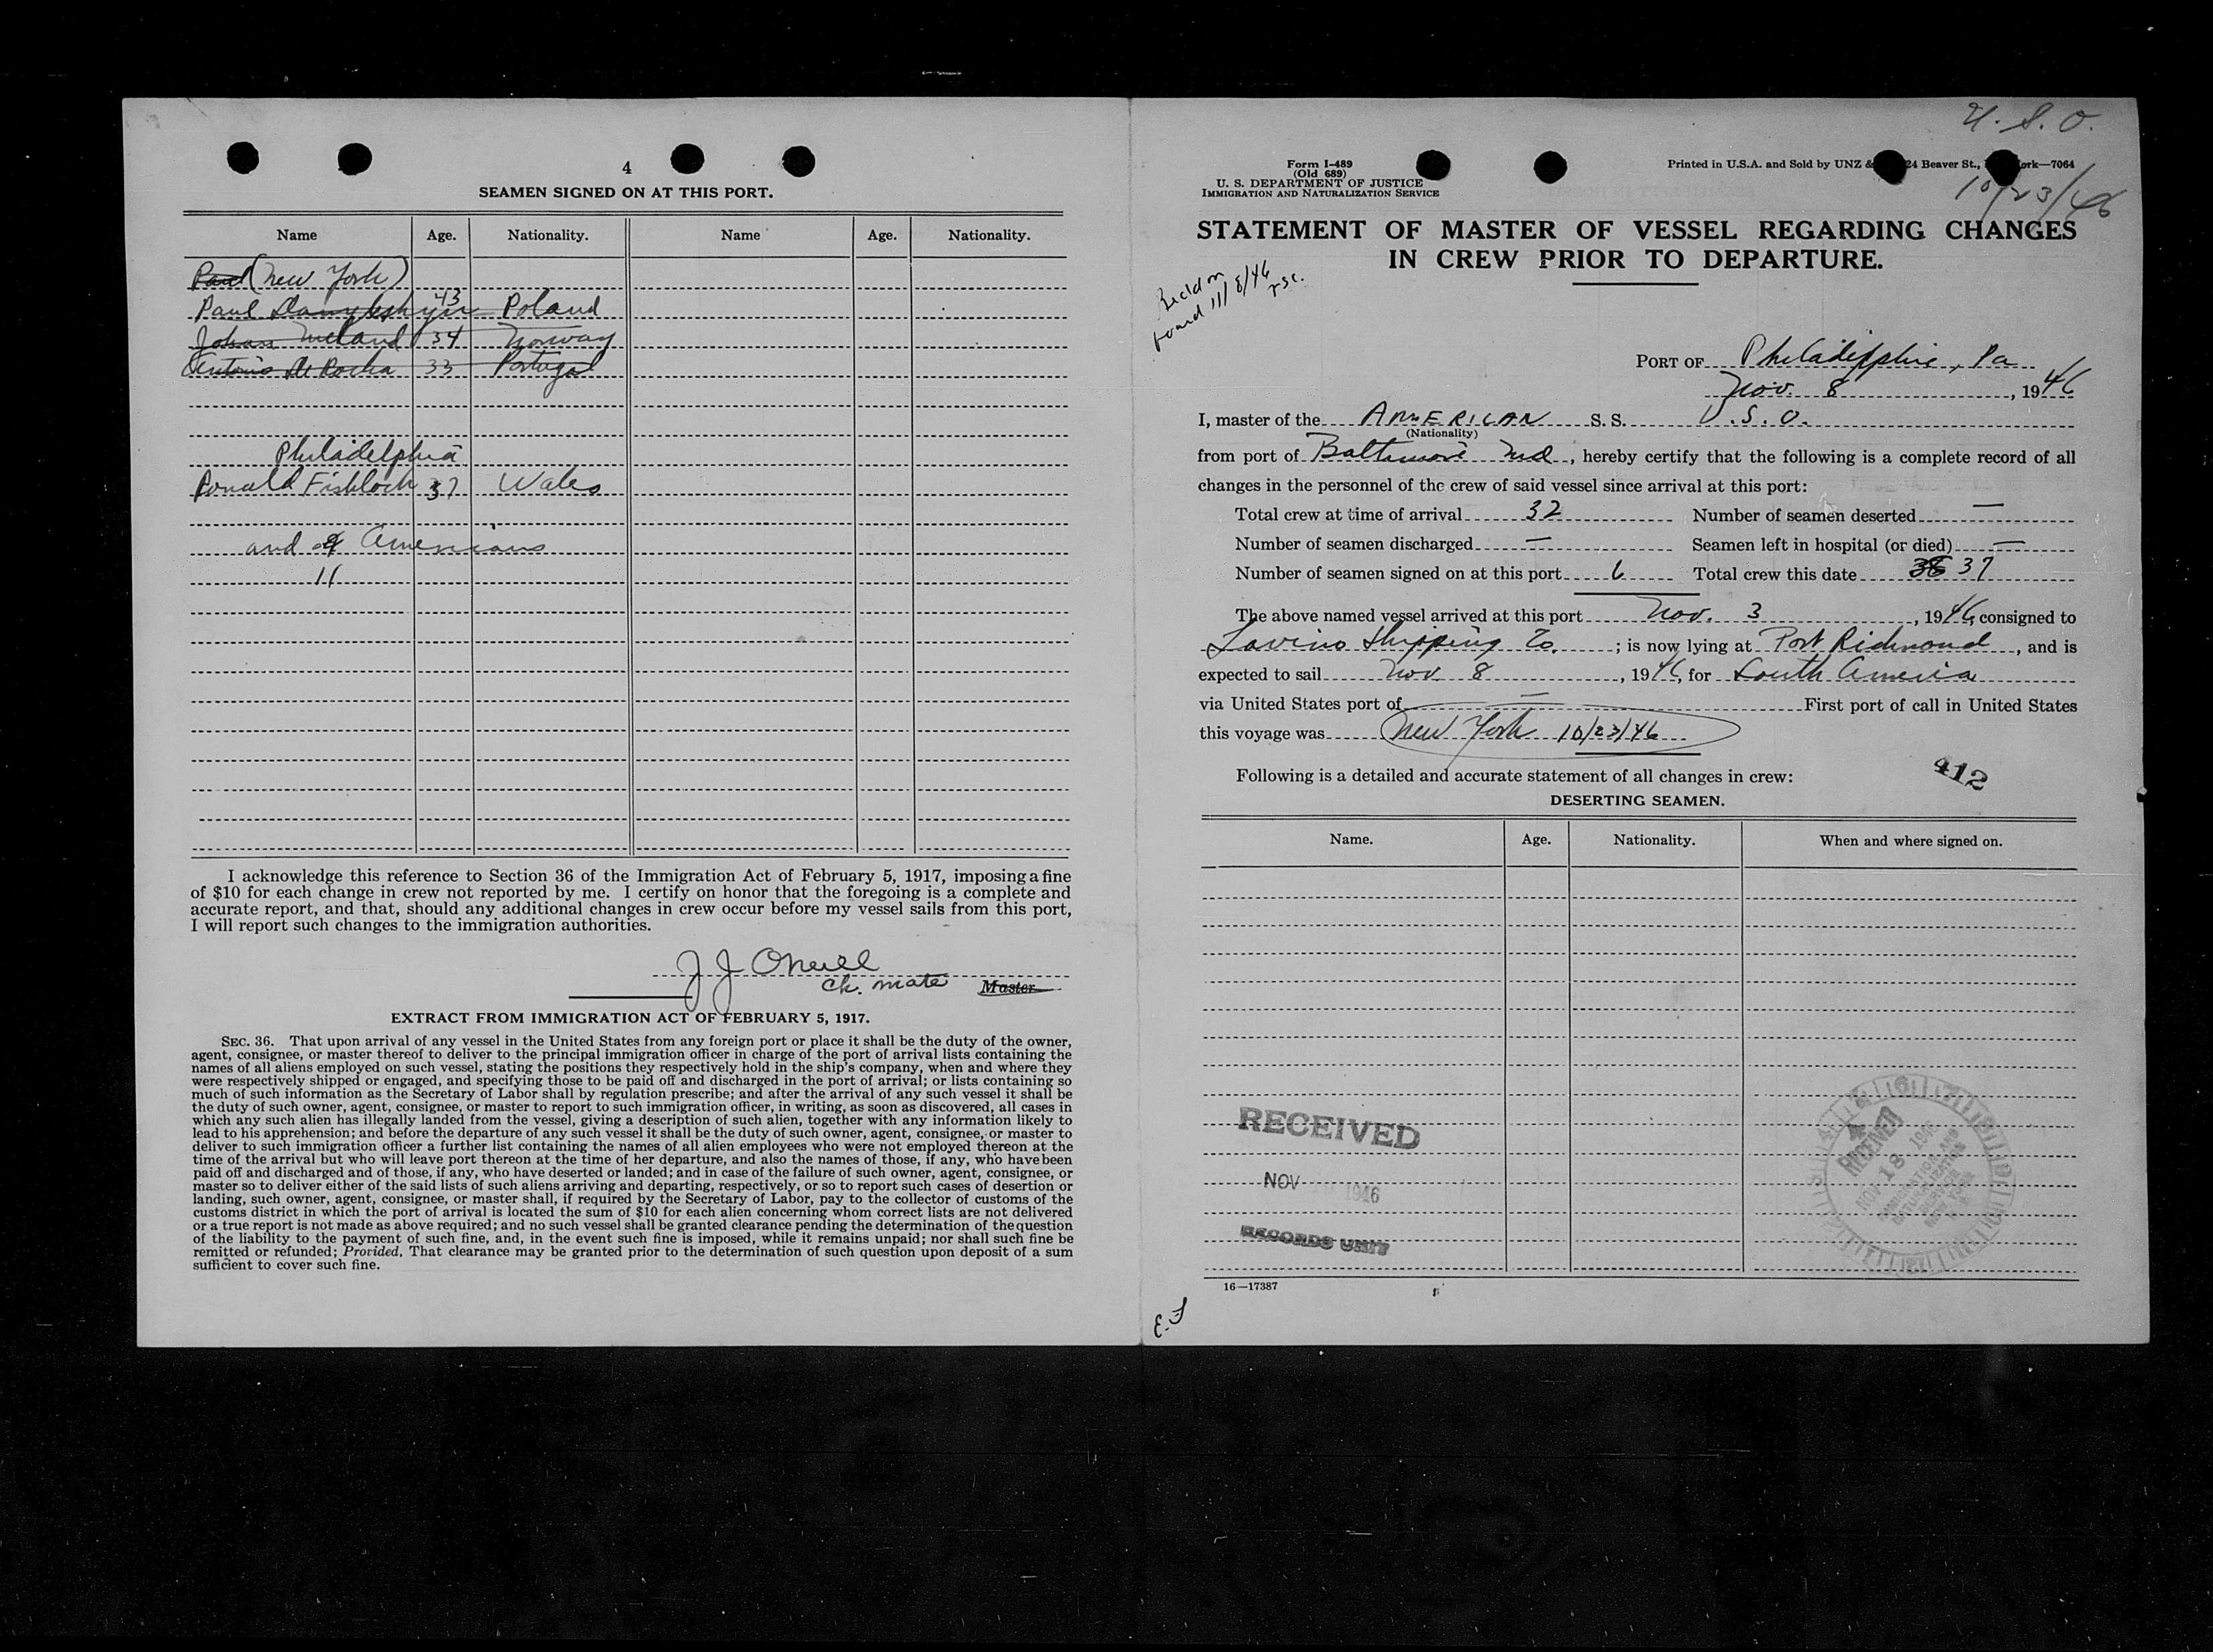 4
SEAMEN SIGNED ON AT THIS PORT.
Name Age. Nationality. Name Age. Nationality.
Paul (New York)
Paul 43 Poland
Johan Meland 34 Norway
Antonio De Rocha 33 Portugal
Philadelphia
Ronald Fishlock 37 Wales
and Americans
11
I acknowledge this reference to Section 36 of the Immigration Act of February 5, 1917, imposing a fine
of $10 for each change in crew not reported by me. I certify on honor that the foregoing is a complete and
accurate report, and that, should any additional changes in crew occur before my vessel sails from this port,
I will report such changes to the immigration authorities.
J J ONeill
Ch. mate Master
EXTRACT FROM IMMIGRATION ACT OF FEBRUARY 5, 1917.
SEC. 36. That upon arrival of any vessel in the United States from any foreign port or place it shall be the duty of the owner,
agent, consignee, or master thereof to deliver to the principal immigration officer in charge of the port of arrival lists containing the
names of all aliens employed on such vessel, stating the positions they respectively hold in the ship's company, when and where they
were respectively shipped or engaged, and specifying those to be paid off and discharged in the port of arrival; or lists containing so
much of such information as the Secretary of Labor shall by regulation prescribe; and after the arrival of any such vessel it shall be
the duty of such owner, agent, consignee, or master to report to such immigration officer, in writing, as soon as discovered, all cases in
which any such alien has illegally landed from the vessel, giving a description of such alien, together with any information likely to
lead to his apprehension; and before the departure of any such vessel it shall be the duty of such owner, agent, consignee, or master to
deliver to such immigration officer a further list containing the names of all alien employees who were not employed thereon at the
time of the arrival but who will leave port thereon at the time of her departure, and also the names of those, if any, who have been
paid off and discharged and of those, if any, who have deserted or landed; and in case of the failure of such owner, agent, consignee, or
master so to deliver either of the said lists of such aliens arriving and departing, respectively, or so to report such cases of desertion or
landing, such owner, agent, consignee, or master shall, if required by the Secretary of Labor, pay to the collector of customs of the
customs district in which the port of arrival is located the sum of $10 for each alien concerning whom correct lists are not delivered
or a true report is not made as above required; and no such vessel shall be granted clearance pending the determination of the question
of the liability to the payment of such fine, and, in the event such fine is imposed, while it remains unpaid; nor shall such fine be
remitted or refunded; Provided, That clearance may be granted prior to the determination of such question upon deposit of a sum
sufficient to cover such fine.
U. S. O.
10/23/46
Form I-489
(Old 689)
U. S. DEPARTMENT OF JUSTICE
IMMIGRATION AND NATURALIZATION SERVICE
Printed in U.S.A. and Sold by UNZ & 24 Beaver St., ork—7064
STATEMENT OF MASTER OF VESSEL REGARDING CHANGES
IN CREW PRIOR TO DEPARTURE.
11/8/46
PORT OF Philadelphia, Pa
Nov. 8, 1946
I, master of the AMERICAN S. S. U.S.O.
(Nationality)
from port of Baltimore Md, hereby certify that the following is a complete record of all
changes in the personnel of the crew of said vessel since arrival at this port:
Total crew at time of arrival 32 Number of seamen deserted —
Number of seamen discharged — Seamen left in hospital (or died) —
Number of seamen signed on at this port 6 Total crew this date 38 37
The above named vessel arrived at this port Nov. 3, 1946, consigned to
Lavino Shipping Co; is now lying at Port Richmond, and is
expected to sail Nov 8, 1946, for South America
via United States port of — First port of call in United States
this voyage was New York 10/23/46
Following is a detailed and accurate statement of all changes in crew:
412
DESERTING SEAMEN.
Name. Age. Nationality. When and where signed on.
RECEIVED
NOV 1946
RECORDS UNIT
RECEIVED
NOV 18 1946
16—17387